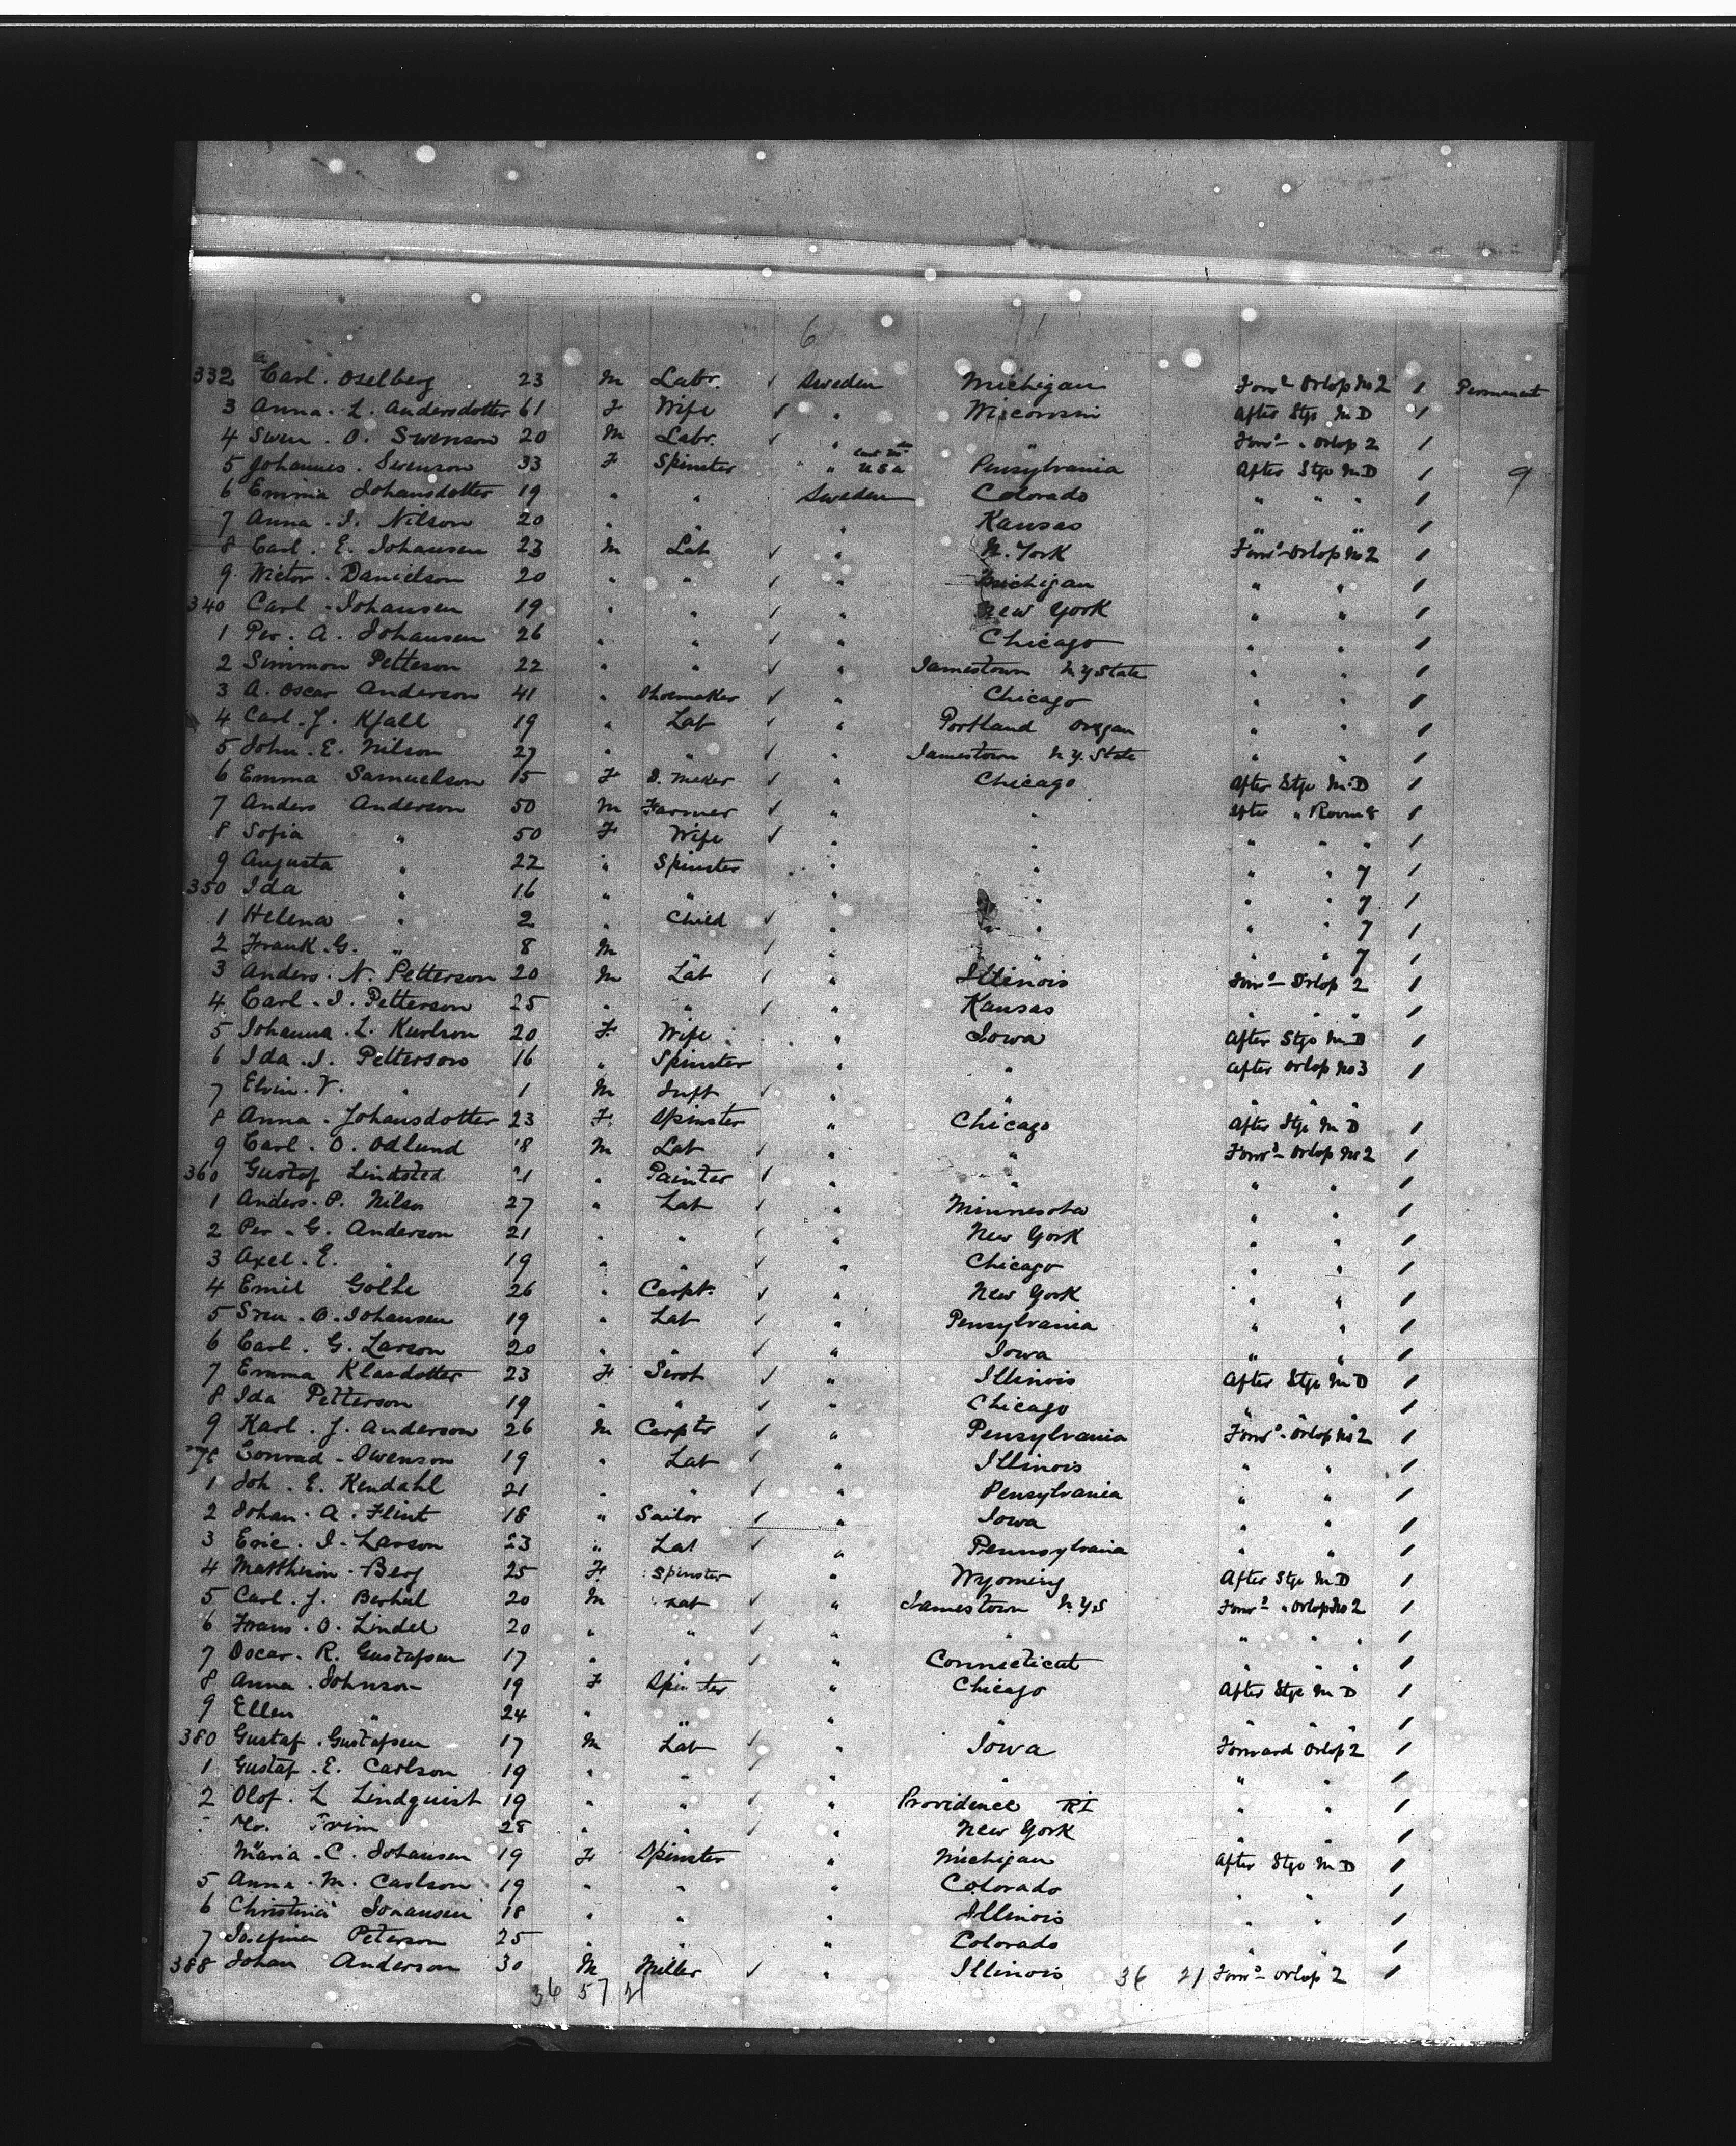 6 71
a
332 Carl. Oselberg 23 M Labr. ✓ Sweden Michigan Forwd Orlop No 2 1 Permanent
3 Anna. L. Andersdotter 61 F Wife ✓ " Wisconsin After Stge M D 1
4 Swen. O. Swenson 20 M Labr. ✓ " " Forwd " Orlop 2 1
5 Johannes. Swenson 33 F Spinster " U S a Pensylvania After Stge M D 1 9
6 Emma Johansdotter 19 " " Sweden Colorado " " " 1
7 Anna. I. Nilson 20 " " " Kansas " " 1
8 Carl. E. Johansen 23 M Lab ✓ " N. York Forwd Orlop No 2 1
9 Victor. Danielson 20 " " ✓ " Michigan " " 1
340 Carl. Johansen 19 " " ✓ " New York " " 1
1 Per. A. Johansen 26 " " ✓ " Chicago " " 1
2 Simmon Petterson 22 " " ✓ " Jamestown N Y State " " 1
3 A. Oscar Anderson 41 " Shoemaker ✓ " Chicago " " 1
4 Carl. J. Kjall 19 " Lab ✓ " Portland Oregan " " 1
5 John. E. Nilson 27 " " ✓ " Jamestown N Y. State " " 1
6 Emma Samuelson 15 F D. Maker ✓ " Chicago After Stge M D 1
7 Anders Anderson 50 M Farmer ✓ " " After " Room 8 1
8 Sofia " 50 F Wife ✓ " " " " " 1
9 Augusta " 22 " Spinster " " " " 7 1
350 Ida " 16 " " " " " " 7 1
1 Helena " 2 " Child ✓ " " " " 7 1
2 Frank. G. " 8 M " ✓ " " " " 7 1
3 Anders. N. Petterson 20 M Lab ✓ " Illinois Forwd Orlop 2 1
4 Carl. I. Petterson 25 " " ✓ " Kansas " " " 1
5 Johanna. L. Kurlson 20 F Wife " Iowa After Stge M D 1
6 Ida. I. Petterson 16 " Spinster " " After Orlop No 3 1
7 Elvin. V. " 1 M Inft ✓ " " " " "
8 Anna. Johansdotter 23 F. Spinster " Chicago After Stge M D 1
9 Carl. O. Odlund 18 M Lab ✓ " " Forwd Orlop No 2 1
360 Gustof Lindsted 21 " Painter ✓ " " " " 1
1 Anders. P. Nilson 27 " Lab ✓ " Minnesota " " 1
2 Per. G. Anderson 21 " " ✓ " New York " " 1
3 Axel. E. " 19 " " ✓ " Chicago " " 1
4 Emil Golhe 26 " Carpt. ✓ " New York " " 1
5 Sven. O. Johansen 19 " Lab ✓ " Pensylvania " " 1
6 Carl. G. Larson 20 " " ✓ " Iowa " " 1
7 Emma Klasdotter 23 F Servt ✓ " Illinois After Stge M D 1
8 Ida Petterson 19 " " ✓ " Chicago " " " 1
9 Karl. J. Anderson 26 M Carptr ✓ " Pensylvania Forwd Orlop No 2 1
Conrad. Swenson 19 " Lab ✓ " Illinois " " 1
1 Joh. E. Kendahl 21 " " ✓ " Pensylvania " " 1
2 Johan. A. Flint 18 " Sailor ✓ " Iowa " " 1
3 Eric. I. Larson 23 " Lab ✓ " Pennsylvania " " 1
4 Matthison. Berg 25 F. Spinster " Wyoming After Stge M D 1
5 Carl. J. 20 M Lab ✓ " Jamestown N Y S Forwd " Orlop No 2 1
6 Frans. O. Lindel 20 " " ✓ " " " " " 1
7 Oscar. R. Gustafsen 17 " " ✓ " Connecticut " " " 1
8 Anna. Johnson 19 F Spinster " Chicago After Stge M D 1
9 Ellen " 24 " " " " " " " 1
380 Gustaf. Gustafsen 17 M Lab ✓ " Iowa Forward Orlop 2 1
1 Gustaf. E. Carlson 19 " " ✓ " " " " 1
2 Olof. L Lindquist 19 " " ✓ " Providence RI " " 1
28 " " ✓ " New York " " 1
Maria. C. Johansen 19 F Spinster " Michigan After Stge M D 1
5 Anna. M. Carlson 19 " " " Colorado " " 1
6 Christina Johansen 18 " " " Illinois " " 1
7 Josefina Peterson 25 " " " Colorado " " 1
388 Johan Anderson 30 M Miller ✓ " Illinois 36 21 Forwd Orlop 2 1
36 57 21